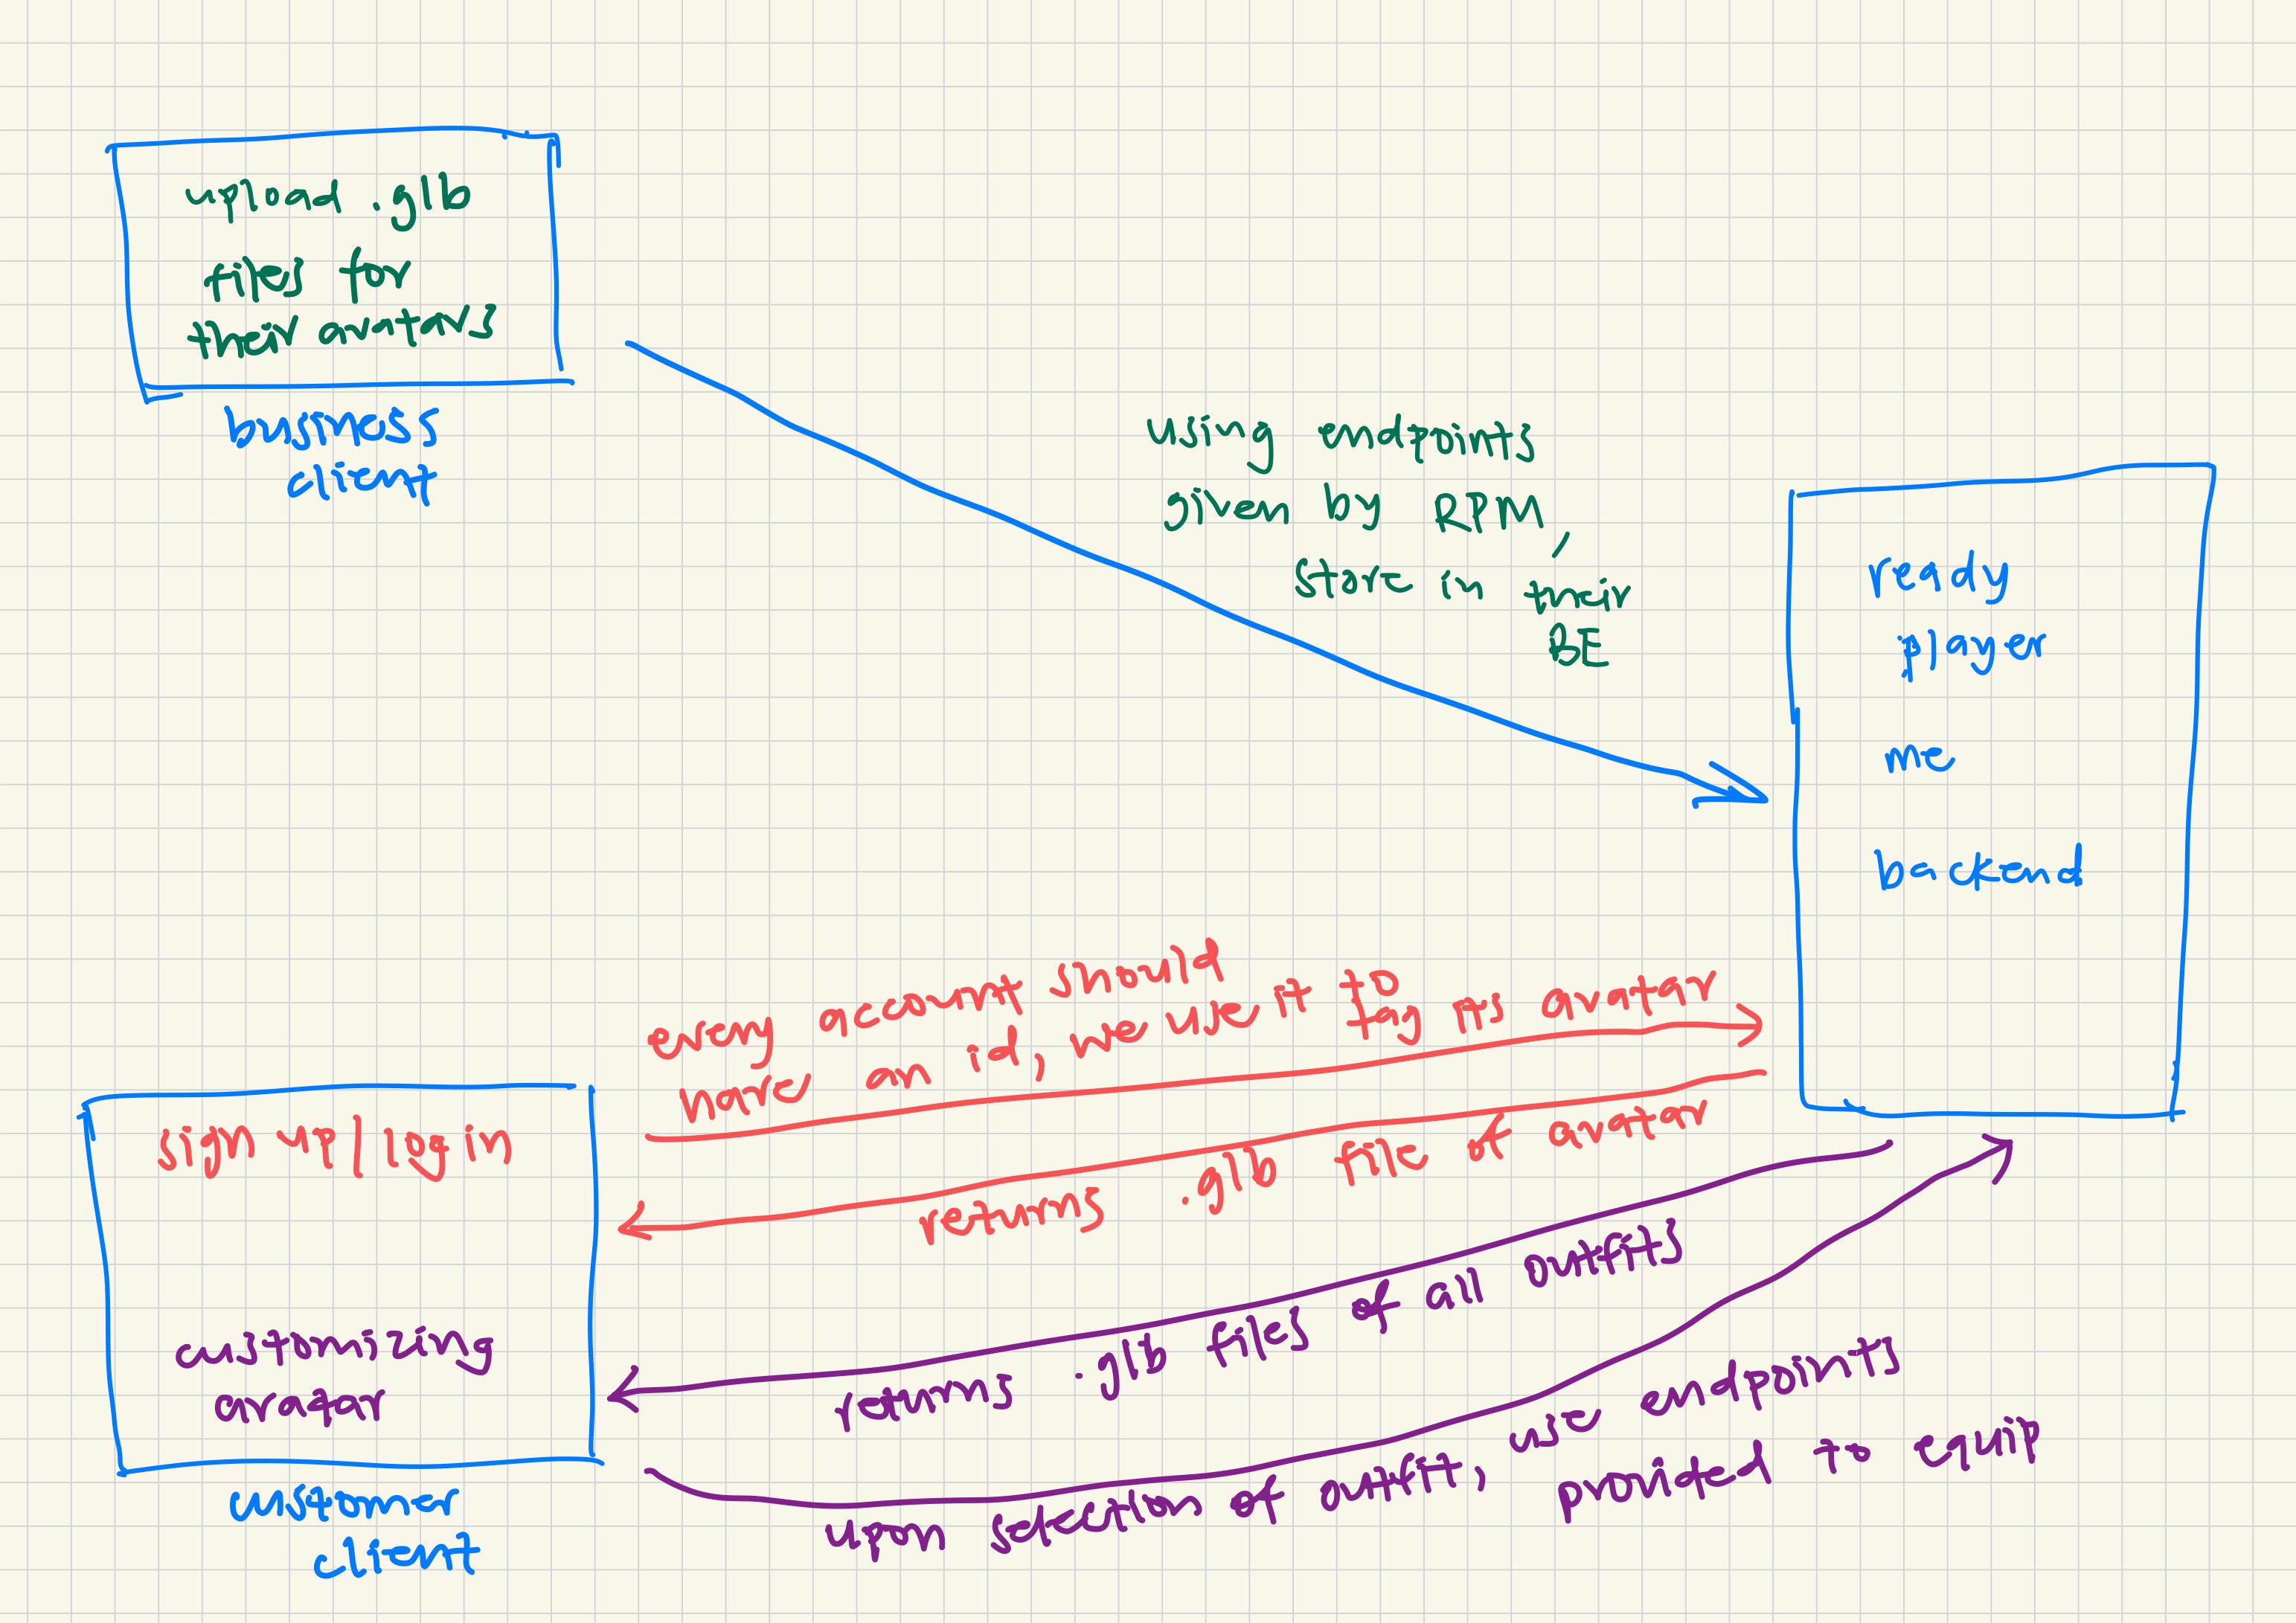 upload .glb
files for
their avatars
business
client
using endpoints
given by RPM,
store in their
BE
ready
player
me
backend
every account should
have an id, we use it to
tag its avatar
sign up / log in
returns .glb file of avatar
customizing
avatar
customer
client
returns .glb files of all outfits
upon selection of outfit, use endpoints
provided to equip